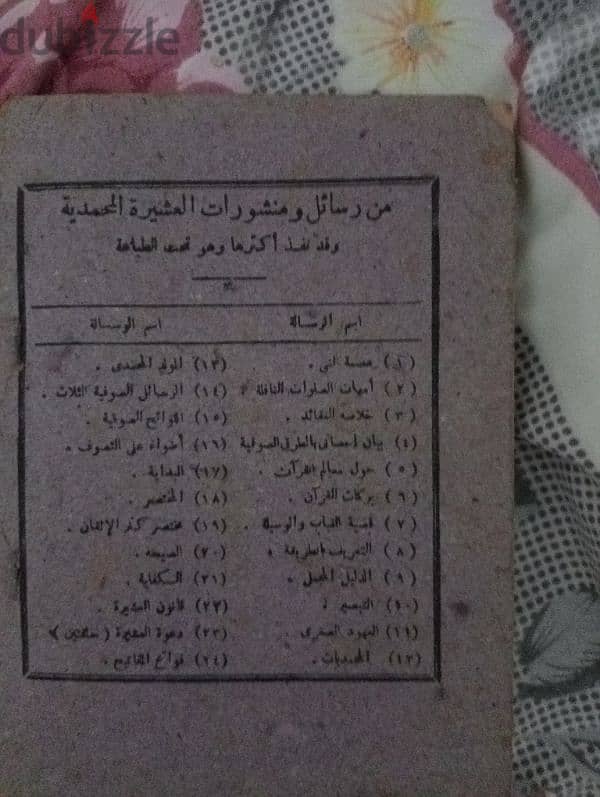 dubizzle
من رسائل ومنشورات العشيرة المحمدية
وقد نفذ أكثرها وهو تحت الطباعة
اسم الرسالة
(١)
(٢) أمهات الصلوات النافلة
(٣) خلاصة العقائد .
(٤) بيان إحصائى بالطرق الصوفية
(٥) حول معالم القرآن .
(٦) بركات القرآن .
(٧) قضية القباب والوسيلة .
(٨) التعريف بالطريقة .
(٩) الدليل المجمل .
(١٠) التيسير .
(١١) العهود الصغرى .
(١٢) المحمديات .
اسم الرسالة
(١٣) المولد المحمدى .
(١٤) الرسائل الصوفية الثلاث .
(١٥) الصوفية .
(١٦) أضواء على التصوف .
(١٧) البداية .
(١٨) المختصر .
(١٩) مختصر الإتقان .
(٢٠)
(٢١) الكفاية .
(٢٢) قانون العشيرة .
(٢٣) دعوة العشيرة
(٢٤)